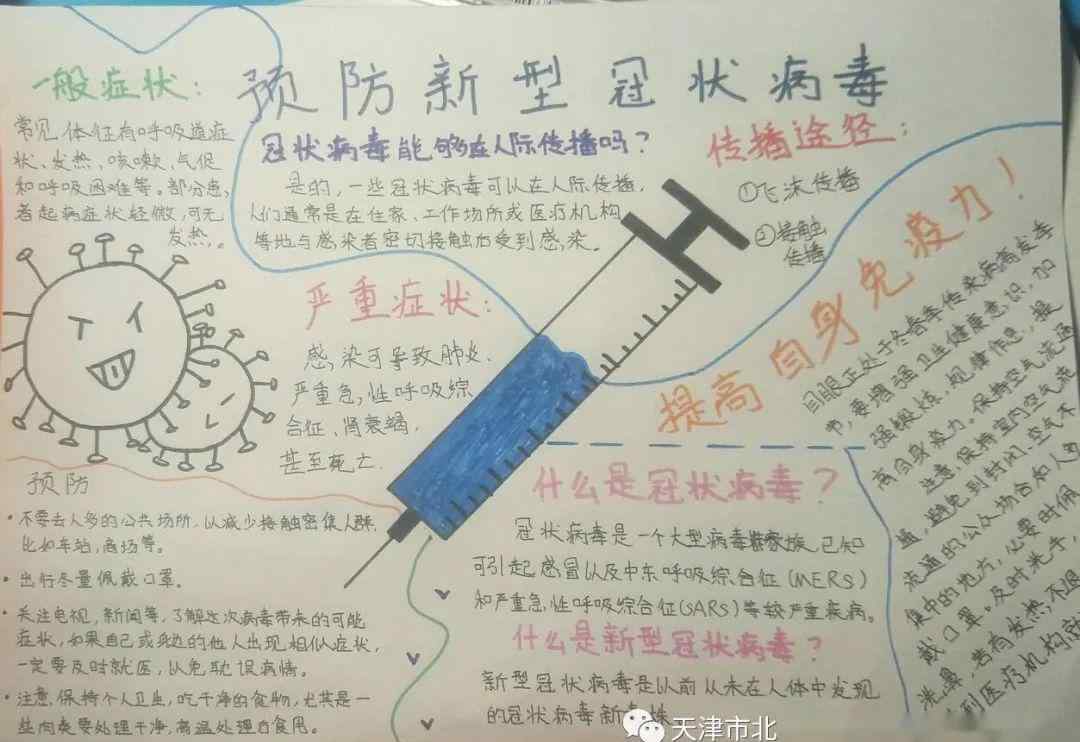 预防新型冠状病毒
一般症状：
常见体征有呼吸道症
状、发热、咳嗽、气促
和呼吸困难等。部分患
者起病症状轻微，可无
发热。
冠状病毒能够在人际传播吗？
是的，一些冠状病毒可以在人际传播，
人们通常是在住家、工作场所或医疗机构
等地与感染者密切接触后受到感染。
传播途径：
①飞沫传播
②接触
传播
严重症状：
感染可导致肺炎、
严重急性呼吸综
合征、肾衰竭，
甚至死亡.
提高自身免疫力！
目眼正处于冬春季传染病高发季
节，要增强卫生健康意识，加
强锻炼，规律作息，提
高自身疫力。保持空气流通
注意，保持室内空气流
通，避免到封闭、空气不
流通的公众场合和人多
集中的地方，必要时佩
戴口罩。及时洗手，
洗鼻，若有发热，不退
到医疗机构就
预防
·不要去人多的公共场所，以减少接触密集人群，
比如车站，商场等。
·出行尽量佩戴口罩。
·关注电视，新闻等，了解这次病毒带来的可能
症状，如果自己或身边的他人出现相似症状，
一定要及时就医，以免耽误病情。
·注意，保持个人卫生，吃干净的食物，尤其是一
些肉类要处理干净，高温处理后食用。
什么是冠状病毒？
冠状病毒是一个大型病毒家族，已知
可引起感冒以及中东呼吸综合征（MERS）
和严重急性呼吸综合征（SARS）等较严重疾病。
什么是新型冠状病毒？
新型冠状病毒是以前从未在人体中发现
的冠状病毒新
株
天津市北